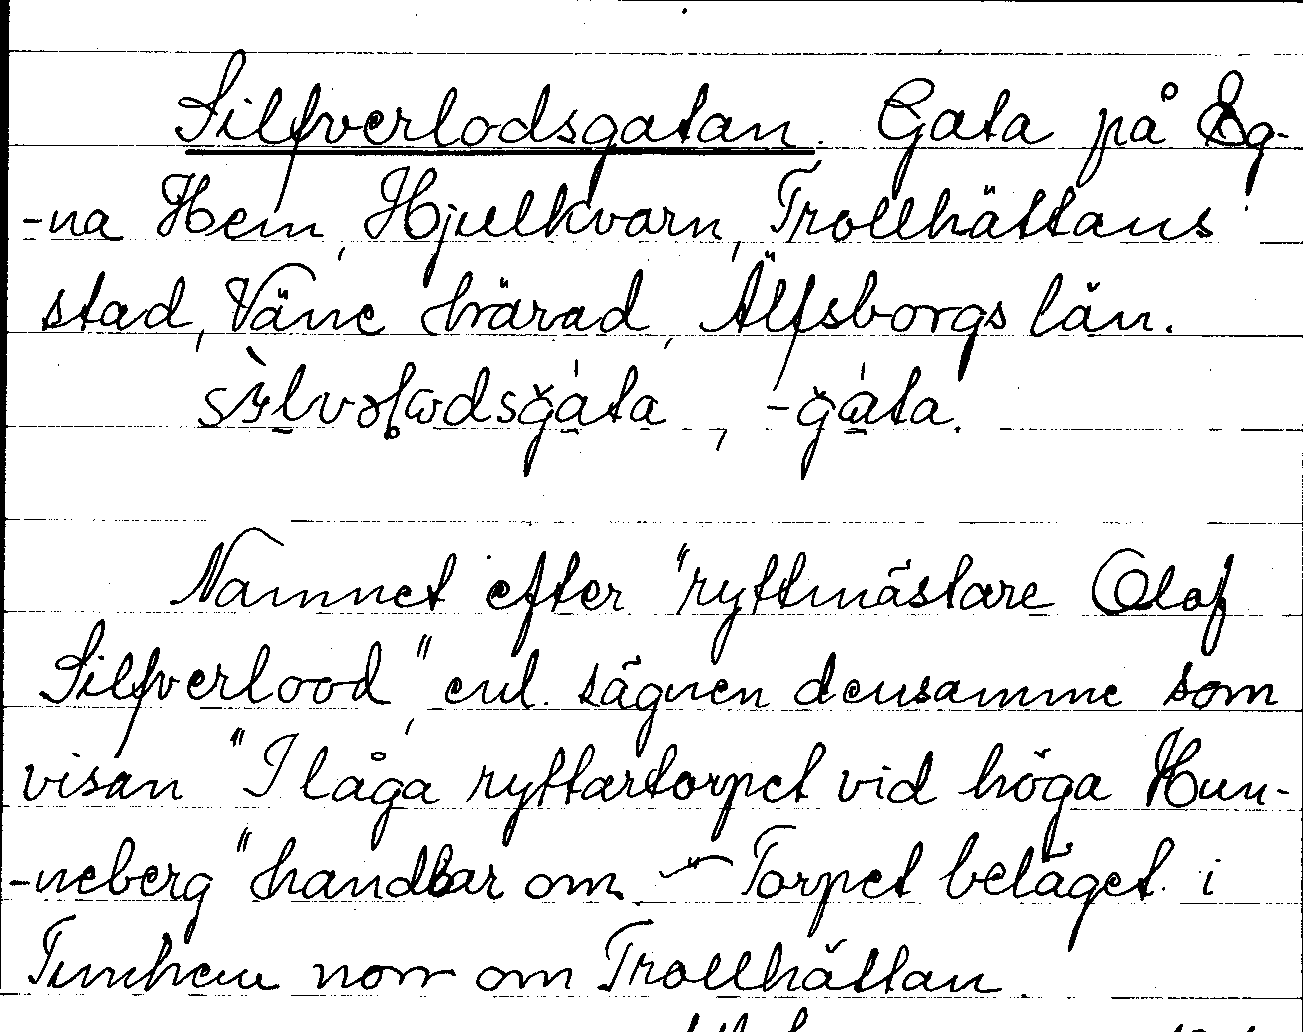 Silfverlodsgatan. Gata på Eg-
-na Hem, Hjulkvarn, Trollhättans
stad, Väne härad, Älfsborgs län.
Namnet efter "ryttmästare Olof
Silfverlood", enl. sägnen densamme som
visan "I låga ryttartorpet vid höga Hun-
-neberg" handlar om. – Torpet beläget i
Tunhem norr om Trollhättan.